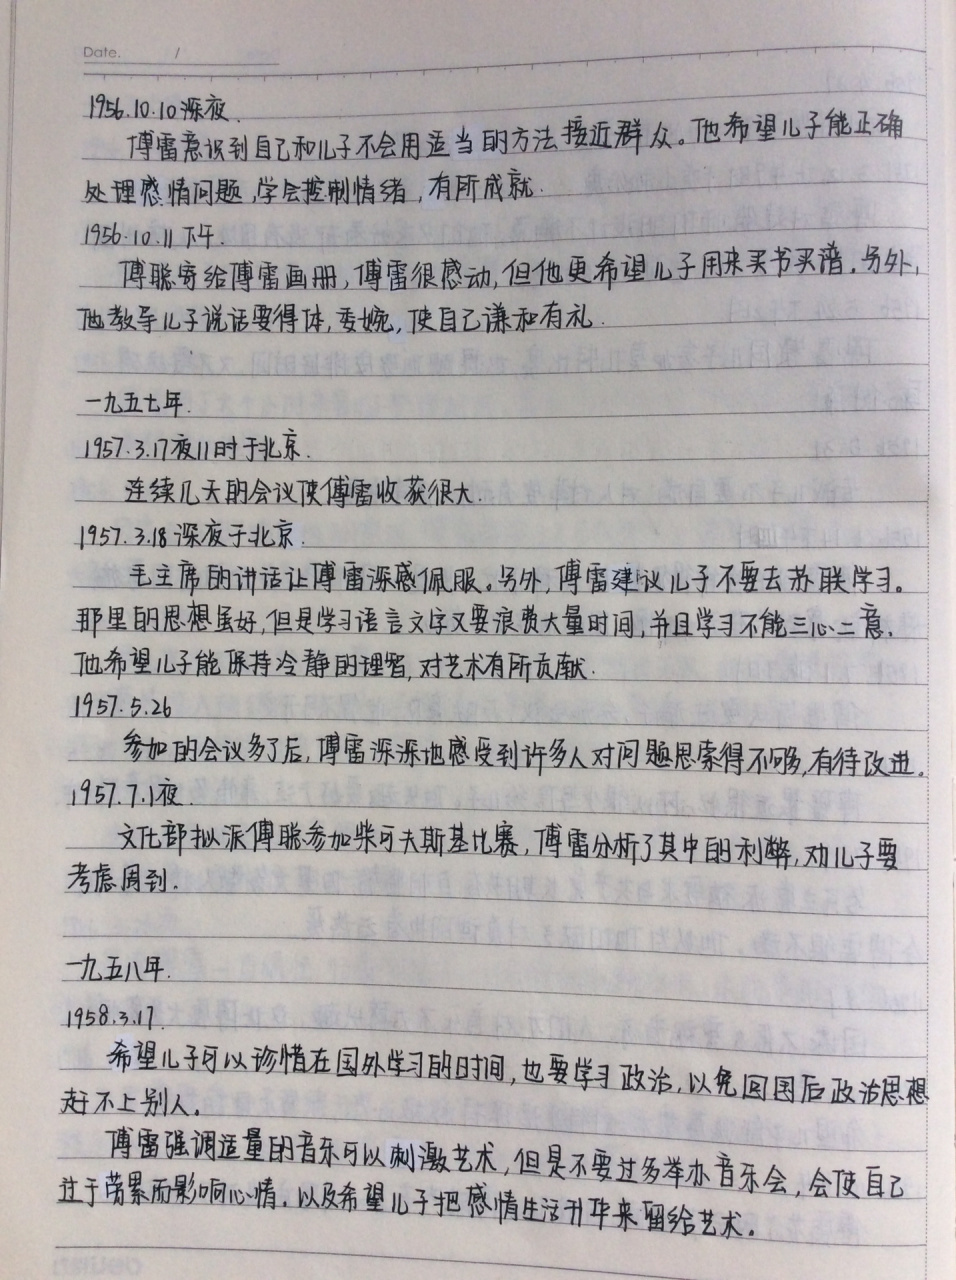 Date. /
1956.10.10深夜.
傅雷意识到自己和儿子不会用适当的方法接近群众。他希望儿子能正确
处理感情问题,学会控制情绪,有所成就.
1956.10.11下午.
傅聪寄给傅雷画册,傅雷很感动,但他更希望儿子用来买书买谱.另外,
他教导儿子说话要得体,委婉,使自己谦和有礼.
一九五七年.
1957.3.17夜11时于北京.
连续几天的会议使傅雷收获很大.
1957.3.18深夜于北京.
毛主席的讲话让傅雷深感佩服。另外,傅雷建议儿子不要去苏联学习。
那里的思想虽好,但是学习语言文字又要浪费大量时间,并且学习不能三心二意.
他希望儿子能保持冷静的理智,对艺术有所贡献.
1957.5.26
参加的会议多了后,傅雷深深地感受到许多人对问题思索得不够,有待改进.
1957.7.1夜.
文化部拟派傅聪参加柴可夫斯基比赛,傅雷分析了其中的利弊,劝儿子要
考虑周到.
一九五八年.
1958.3.17.
希望儿子可以珍惜在国外学习的时间,也要学习政治,以免回国后政治思想
赶不上别人.
傅雷强调适量的音乐可以刺激艺术,但是不要过多举办音乐会,会使自己
过于劳累而影响心情.以及希望儿子把感情生活升华来留给艺术.